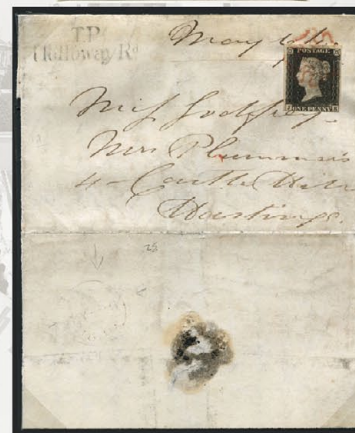 T.P
Holloway Rd
May
POSTAGE
ONE PENNY
Miss Godfrey
Mrs Plummer's
4 Castle Hill
Hastings
25